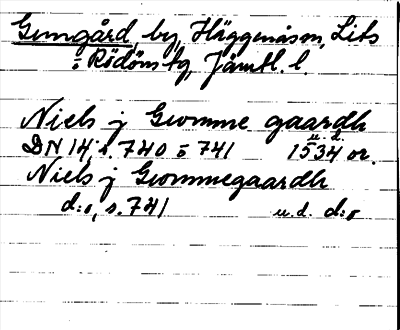 Gumgård, by, Häggenåsm, Lits
o Rödöns tg, Jämtl. l.
Niels j Gwomme gaardh
DN 14, s. 740 o 741 u. d. 1534 or.
Niels j Gwommegaardh
d:o, s. 741 u. d. d:o